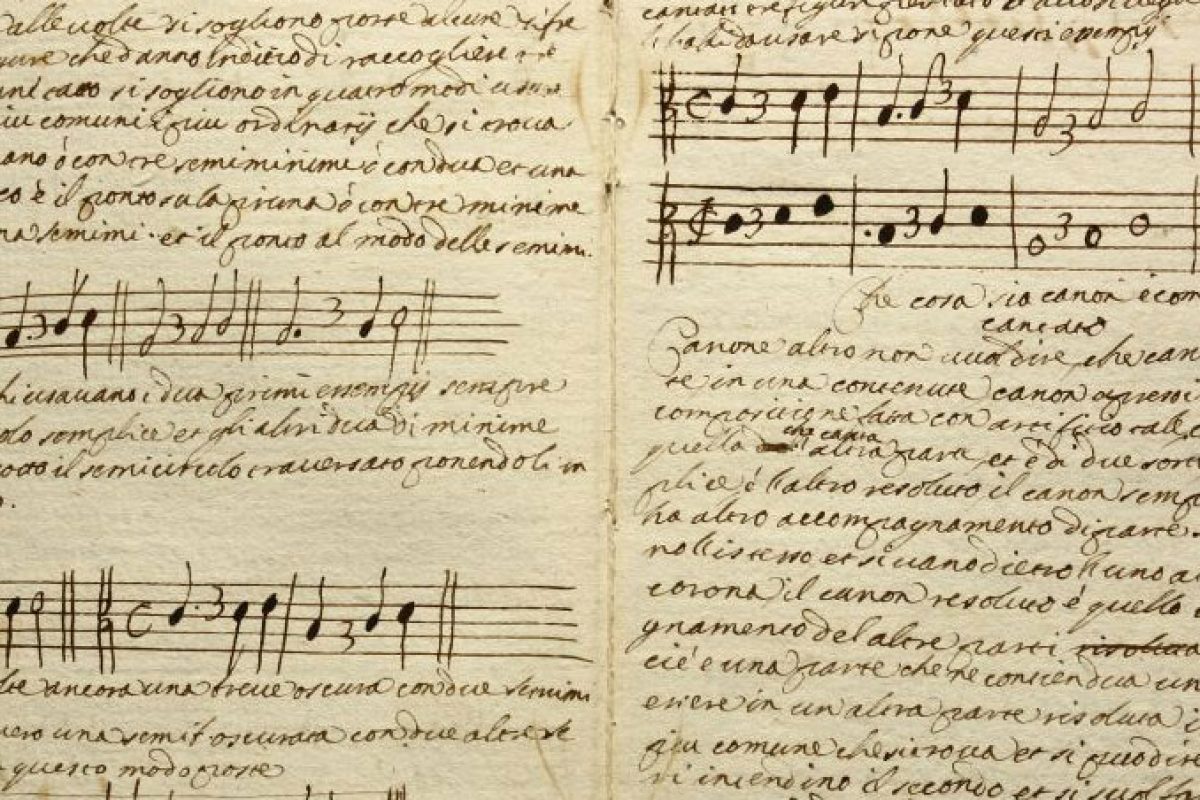 alle volte si sogliono poste alcune sifre
gure che danno Inditio di raccogliere
si sogliono in quatro modi
piu comuni piu ordinarij che si trova
ano ó con tre semiminime ó con dua et una
co è il ponto su la prima ó con tre minime
na semimi. et il ponto al modo delle semim.
3 3 3
usavano i dua primi essempij sempre
olo semplice et gli altri dua di minime
sotto il semicircolo traversato ponendoli in
3 3
ancora una breve oscura con due semimi
vero una semib oscurata con due altre se
questo modo poste
causare si pone questi esempij
3 3 3
3 3 3
Che cosa sia canon è com
cantato
Canone altro non vuol dire, che can
te in una contenute canon apresso
compositione fata con artificio tale c
che canta
quella altra part, et è di due sorti
plice é l'altro resoluto il canon semp
ha altro accompagnamento di parte
noll istesso et si vano dietro l'uno a
corona il canon resoluto é quello
gnamento del altre parti risoluta
cié è una parte che ne contien dua un
essere in un'altra parte risoluta
piu comune che si trova et si puo dire
si intendino il secondo et si